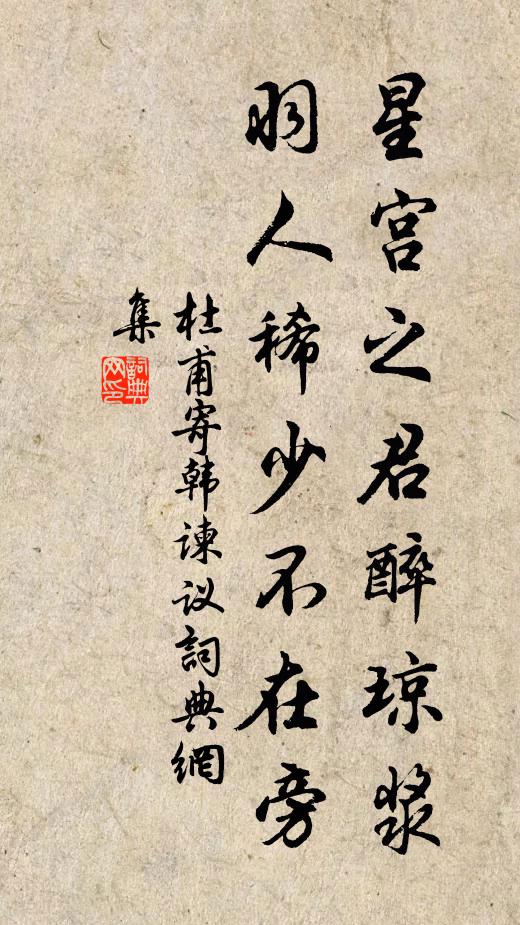 星宫之君醉琼浆
羽人稀少不在旁
杜甫寄韩谏议詞典網
集
詞典网印